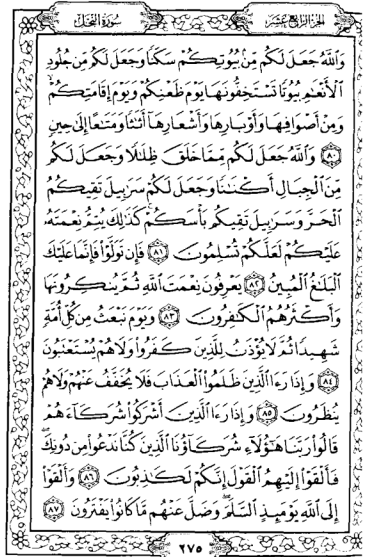 الجزء الرابع عشر
سورة النحل
وَاللَّهُ جَعَلَ لَكُم مِّنۢ بُيُوتِكُمْ سَكَنًا وَجَعَلَ لَكُم مِّن جُلُودِ
الْأَنْعَٰمِ بُيُوتًا تَسْتَخِفُّونَهَا يَوْمَ ظَعْنِكُمْ وَيَوْمَ إِقَامَتِكُمْ
وَمِنْ أَصْوَافِهَا وَأَوْبَارِهَا وَأَشْعَارِهَآ أَثَٰثًا وَمَتَٰعًا إِلَىٰ حِينٍ
﴿٨٠﴾ وَاللَّهُ جَعَلَ لَكُم مِّمَّا خَلَقَ ظِلَٰلًا وَجَعَلَ لَكُم
مِّنَ الْجِبَالِ أَكْنَٰنًا وَجَعَلَ لَكُمْ سَرَٰبِيلَ تَقِيكُمُ
الْحَرَّ وَسَرَٰبِيلَ تَقِيكُم بَأْسَكُمْ كَذَٰلِكَ يُتِمُّ نِعْمَتَهُۥ
عَلَيْكُمْ لَعَلَّكُمْ تُسْلِمُونَ ﴿٨١﴾ فَإِن تَوَلَّوْا فَإِنَّمَا عَلَيْكَ
الْبَلَٰغُ الْمُبِينُ ﴿٨٢﴾ يَعْرِفُونَ نِعْمَتَ اللَّهِ ثُمَّ يُنكِرُونَهَا
وَأَكْثَرُهُمُ الْكَٰفِرُونَ ﴿٨٣﴾ وَيَوْمَ نَبْعَثُ مِن كُلِّ أُمَّةٍ
شَهِيدًا ثُمَّ لَا يُؤْذَنُ لِلَّذِينَ كَفَرُوا وَلَا هُمْ يُسْتَعْتَبُونَ
﴿٨٤﴾ وَإِذَا رَءَا الَّذِينَ ظَلَمُوا الْعَذَابَ فَلَا يُخَفَّفُ عَنْهُمْ وَلَا هُمْ
يُنظَرُونَ ﴿٨٥﴾ وَإِذَا رَءَا الَّذِينَ أَشْرَكُوا شُرَكَآءَهُمْ
قَالُوا رَبَّنَا هَٰٓؤُلَآءِ شُرَكَآؤُنَا الَّذِينَ كُنَّا نَدْعُوا مِن دُونِكَ
فَأَلْقَوْا إِلَيْهِمُ الْقَوْلَ إِنَّكُمْ لَكَٰذِبُونَ ﴿٨٦﴾ وَأَلْقَوْا
إِلَى اللَّهِ يَوْمَئِذٍ السَّلَمَ وَضَلَّ عَنْهُم مَّا كَانُوا يَفْتَرُونَ ﴿٨٧﴾
٢٧٥